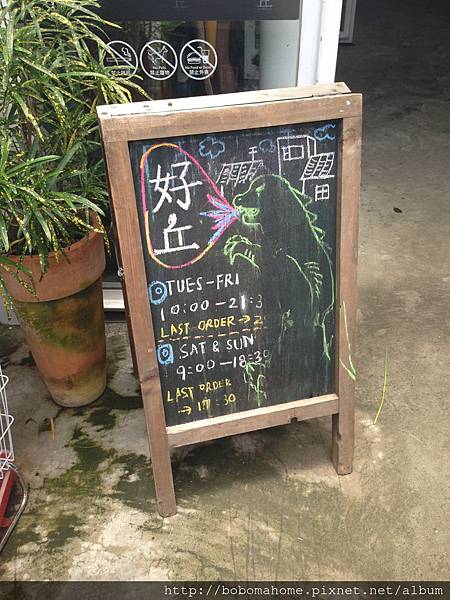 丘
禁止吸菸
No Pets
禁止寵物
No Food or Drink
禁止外食
好
丘
TUES-FRI
10:00-21:3
LAST ORDER →2
SAT & SUN
9:00-18:30
LAST ORDER
→ 17:30
http://bobomahome.pixnet.net/album